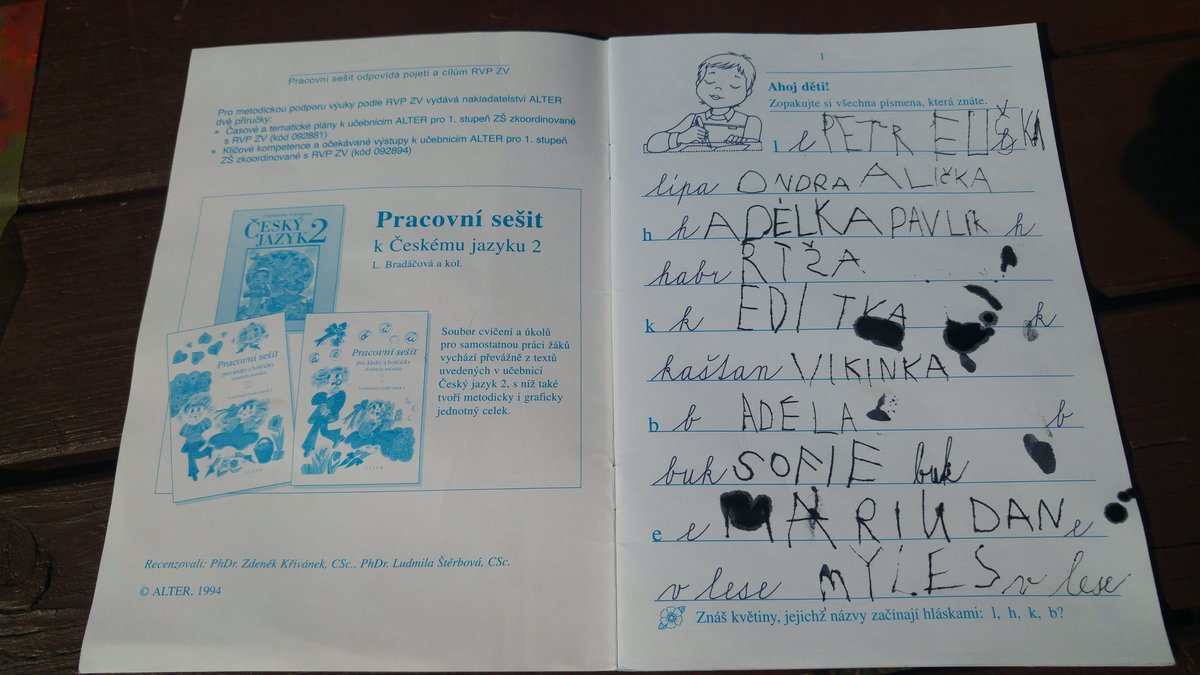 Pracovní sešit odpovídá pojetí a cílům RVP ZV
Pro metodickou podporu výuky podle RVP ZV vydává nakladatelství ALTER
dvě příručky:
• Časové a tematické plány k učebnicím ALTER pro 1. stupeň ZŠ zkoordinované
s RVP ZV (kód 092881)
• Klíčové kompetence a očekávané výstupy k učebnicím ALTER pro 1. stupeň
ZŠ zkoordinované s RVP ZV (kód 092894)
ČESKÝ
JAZYK 2
Pracovní sešit
k Českému jazyku 2
L. Bradáčová a kol.
Pracovní sešit
pro kluky a holčičky
Pracovní sešit
pro kluky a holčičky
ALTER
ALTER
Soubor cvičení a úkolů
pro samostatnou práci žáků
vychází převážně z textů
uvedených v učebnici
Český jazyk 2, s níž také
tvoří metodicky i graficky
jednotný celek.
Recenzovali: PhDr. Zdeněk Křivánek, CSc., PhDr. Ludmila Štěrbová, CSc.
© ALTER, 1994
1
Ahoj děti!
Zopakujte si všechna písmena, která znáte.
l l PETR ELIŠKA
lípa ONDRA ALIČKA
h h ADÉLKA PAVLÍK h
habr
k k EDITKA k
kaštan VIKINKA
b b ADÉLA b
buk SOFIE buk
e e DAN e
v lese MYLES v lese
Znáš květiny, jejichž názvy začínají hláskami: l, h, k, b?